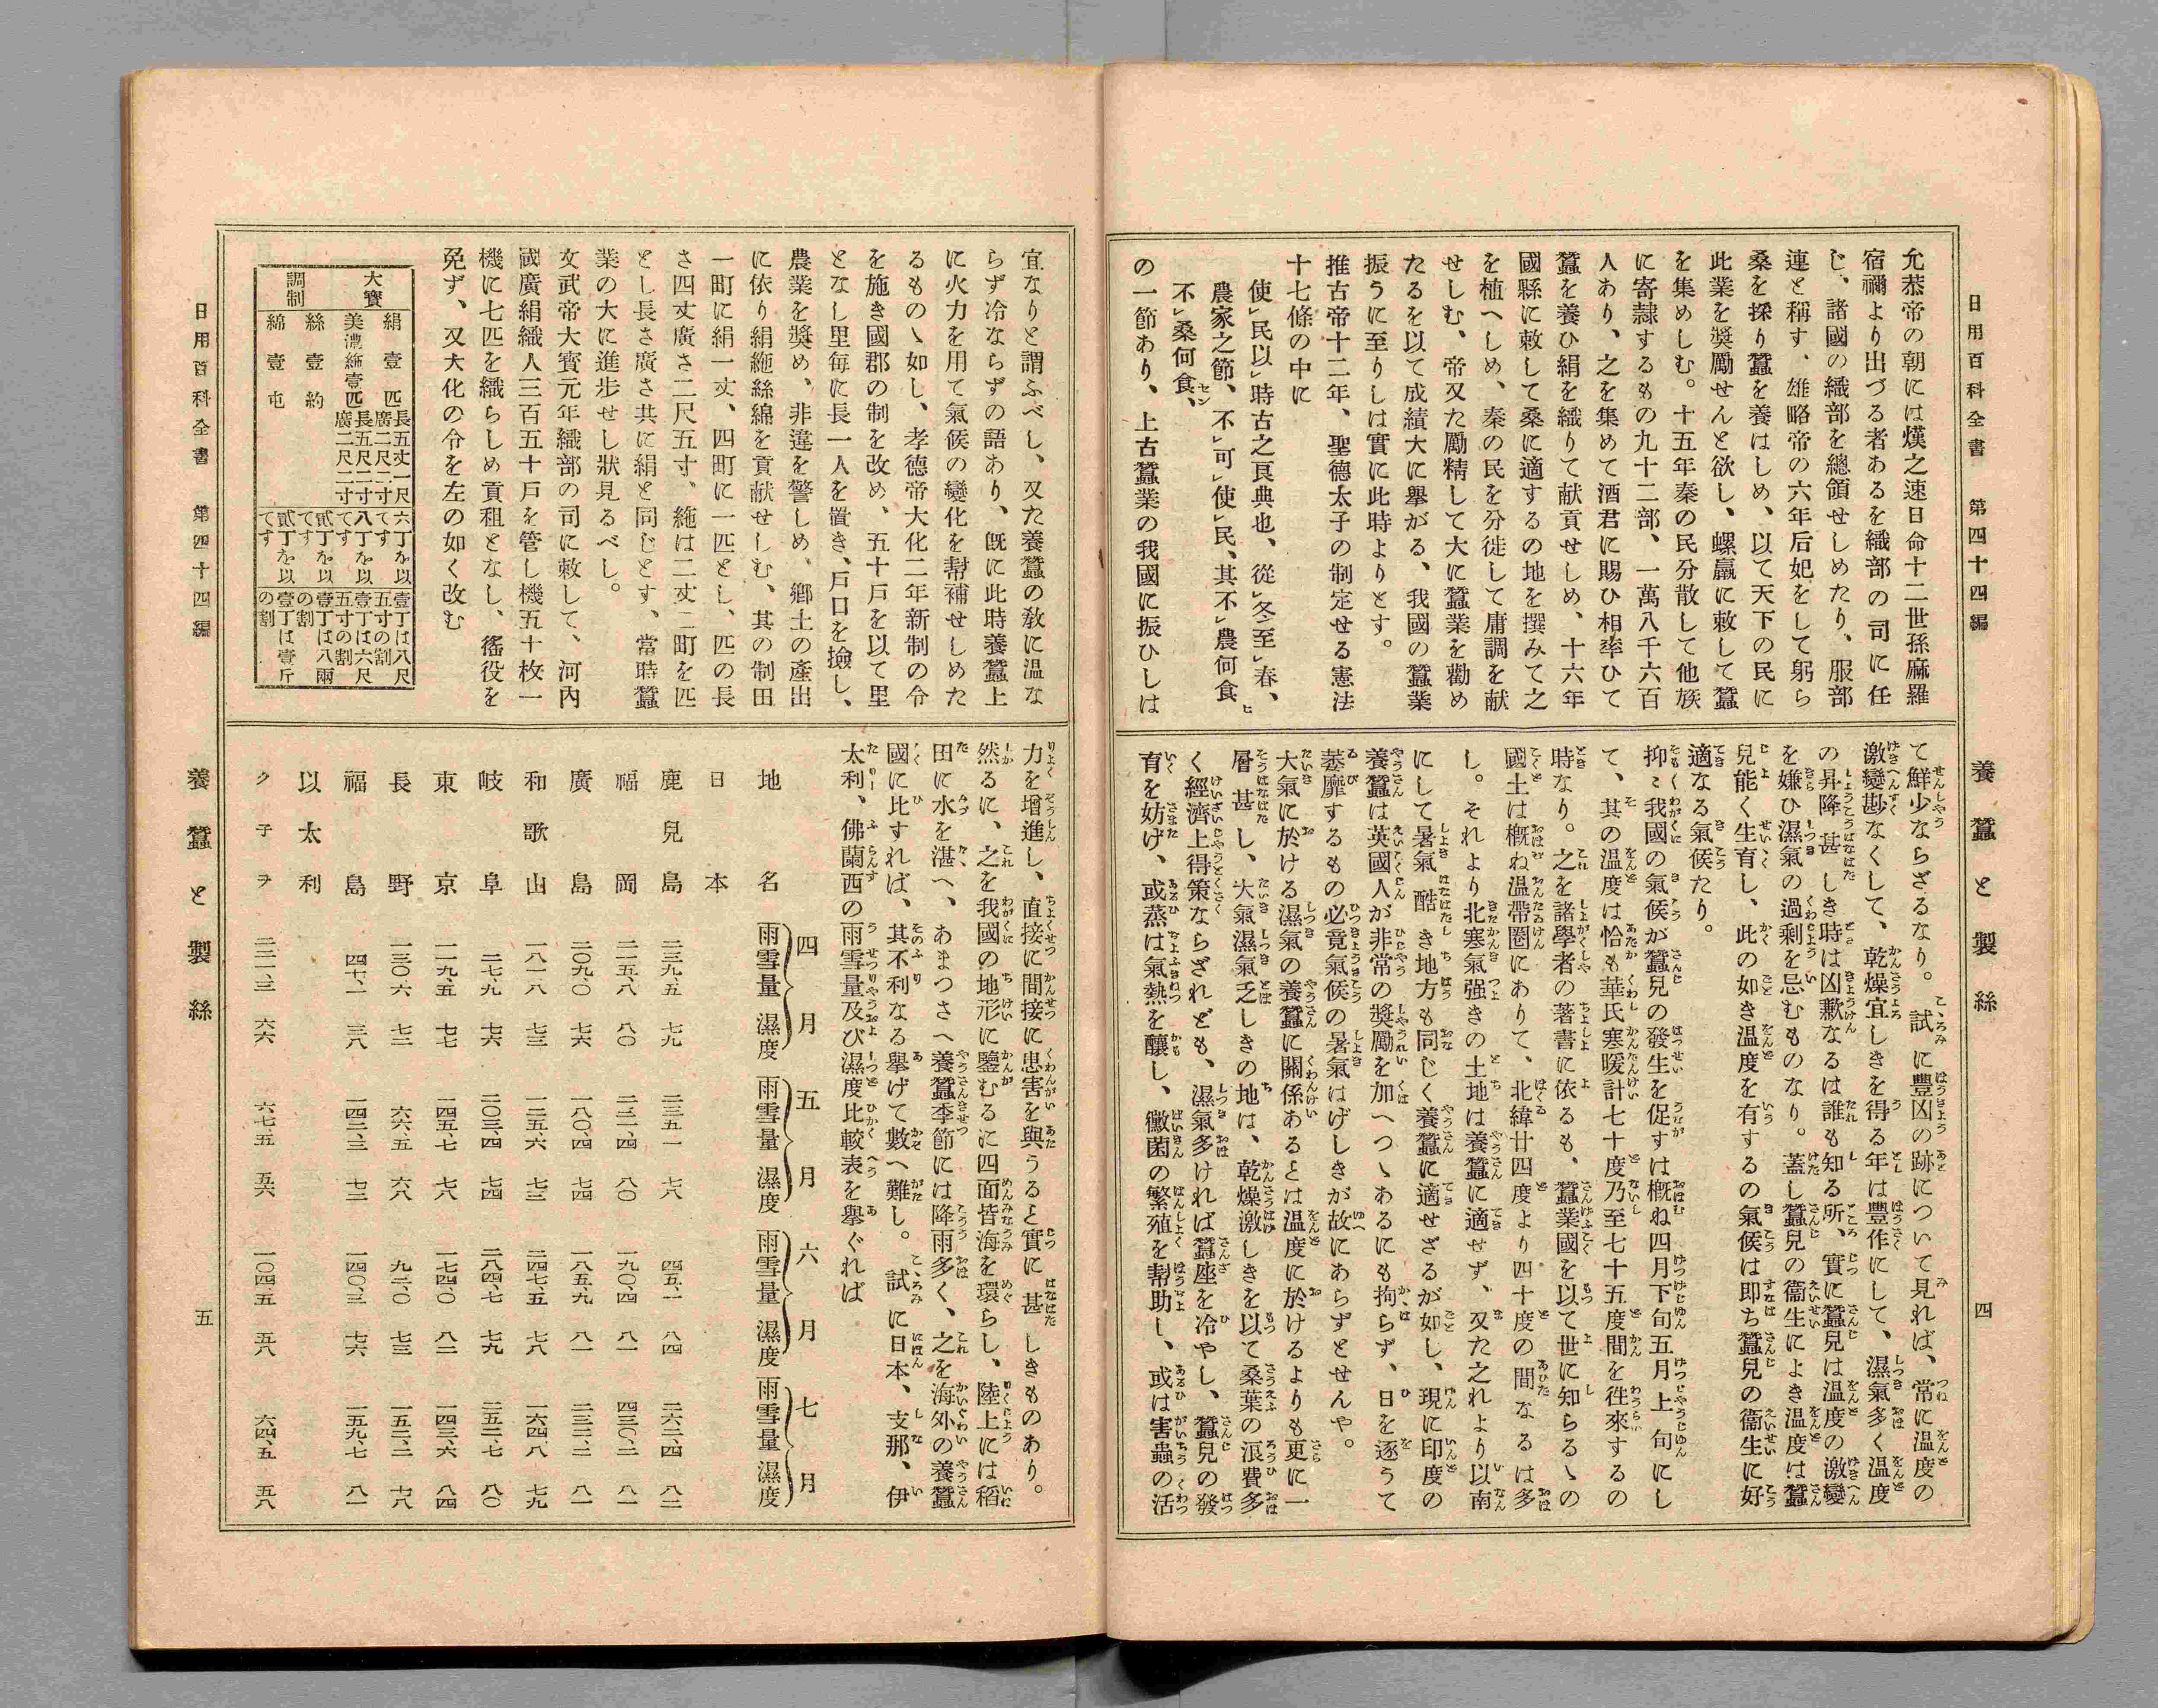 日用百科全書　第四十四編　養蠶と製絲　四
允恭帝の朝には熯之速日命十二世孫麻羅
宿禰より出づる者あるを織部の司に任
じ、諸國の織部を總領せしめたり、服部
連と稱す、雄略帝の六年后妃をして躬ら
桑を採り蠶を養はしめ、以て天下の民に
此業を奬勵せんと欲し、螺蠃に敕して蠶
を集めしむ。十五年秦の民分散して他族
に寄隷するもの九十二部、一萬八千六百
人あり、之を集めて酒君に賜ひ相率ひて
蠶を養ひ絹を織りて献貢せしめ、十六年
國縣に敕して桑に適するの地を撰みて之
を植へしめ、秦の民を分徙して庸調を献
せしむ、帝又た勵精して大に蠶業を勸め
たるを以て成績大に擧がる、我國の蠶業
振うに至りしは實に此時よりとす。
推古帝十二年、聖德太子の制定せる憲法
十七條の中に
使㆑民以㆑時古之良典也、從㆑冬至㆑春、
農家之節、不㆑可㆑使㆑民、其不㆑農何食ヒ
不㆑桑何食セン、
の一節あり、上古蠶業の我國に振ひしは
て鮮少ならざるなり。試に豐凶の跡について見れば、常に温度の
激變尠なくして、乾燥宜しきを得る年は豐作にして、濕氣多く温度
の昇降甚しき時は凶歉なるは誰も知る所、實に蠶兒は温度の激變
を嫌ひ濕氣の過剩を忌むものなり。蓋し蠶兒の衞生によき温度は蠶
兒能く生育し、此の如き温度を有するの氣候は即ち蠶兒の衞生に好
適なる氣候たり。
抑〻我國の氣候が蠶兒の發生を促すは概ね四月下旬五月上旬にし
て、其の温度は恰も華氏寒暖計七十度乃至七十五度間を徃來するの
時なり。之を諸學者の著書に依るも、蠶業國を以て世に知らるゝの
國土は概ね温帶圏にありて、北緯廿四度より四十度の間なるは多
し。それより北寒氣强きの土地は養蠶に適せず、又た之れより以南
にして暑氣酷き地方も同じく養蠶に適せざるが如し、現に印度の
養蠶は英國人が非常の奬勵を加へつゝあるにも拘らず、日を逐うて
萎靡するもの必竟氣候の暑氣はげしきが故にあらずとせんや。
大氣に於ける濕氣の養蠶に關係あるとは温度に於けるよりも更に一
層甚し、大氣濕氣乏しきの地は、乾燥激しきを以て桑葉の浪費多
く經濟上得策ならざれども、濕氣多ければ蠶座を冷やし、蠶兒の發
育を妨げ、或蒸は氣熱を釀し、黴菌の繁殖を幇助し、或は害蟲の活
宜なりと謂ふべし、又た養蠶の敎に温な
らず冷ならずの語あり、旣に此時養蠶上
に火力を用て氣候の變化を幇補せしめた
るものゝ如し、孝德帝大化二年新制の令
を施き國郡の制を改め、五十戸を以て里
となし里每に長一人を置き、戸口を撿し、
農業を奬め、非違を警しめ、鄕土の產出
に依り絹絁絲綿を貢献せしむ、其の制田
一町に絹一丈、四町に一匹とし、匹の長
さ四丈廣さ二尺五寸、絁は二丈二町を匹
とし長さ廣さ共に絹と同じとす、當時蠶
業の大に進步せし狀見るべし。
文武帝大寶元年織部の司に敕して、河內
國廣絹織人三百五十戸を管し機五十枚一
機に七匹を織らしめ貢租となし、徭役を
免ず、又大化の令を左の如く改む
大寶調制
絹　壹匹　長五丈一尺廣二尺二寸　六丁を以てす　壹丁は八尺五寸の割
美濃絁壹匹　長五尺二寸廣二尺二寸　八丁を以てす　壹丁は六尺五寸の割
絲　壹約　貳丁を以てす　壹丁は八兩の割
綿　壹屯　貳丁を以てす　壹丁は壹斤の割
力を增進し、直接に間接に患害を與うると實に甚しきものあり。
然るに、之を我國の地形に鑒むるに四面皆海を環らし、陸上には稻
田に水を湛へ、あまつさへ養蠶季節には降雨多く、之を海外の養蠶
國に比すれば、其不利なる擧げて數へ難し。試に日本、支那、伊
太利、佛蘭西の雨雪量及び濕度比較表を擧ぐれば
地名　四月　雨雪量　濕度　五月　雨雪量　濕度　六月　雨雪量　濕度　七月　雨雪量　濕度
日本
鹿兒島　二三九、五　七九　二三五一　七八　四五、一　八四　二六二、四　八二
福岡　二一五、八　八〇　二二一、四　八〇　一九〇、四　八一　四三〇、二　八一
廣島　二〇九、〇　七六　一八〇、四　七四　一八五、九　八一　二三二、二　八一
和歌山　一八一、八　七三　一二五、六　七三　二四七、五　七八　一六四、八　七九
岐阜　二七、九　七六　二〇三、四　七四　二八四、七　七九　二五二、七　八〇
東京　一一九、五　七七　一四五、七　七八　一七四、〇　八二　一四三、六　八四
長野　一三〇、六　七二　六六、五　六八　九二、〇　七三　一五二、二　七八
福島　四七、一　三八　一四二、三　七二　一四〇、三　七六　一五九、七　八一
以太利
クチヲ　二二一、三　六六　六七、五　五六　一〇四、五　五八　六四、五　五八
日用百科全書　第四十四編　養蠶と製絲　五